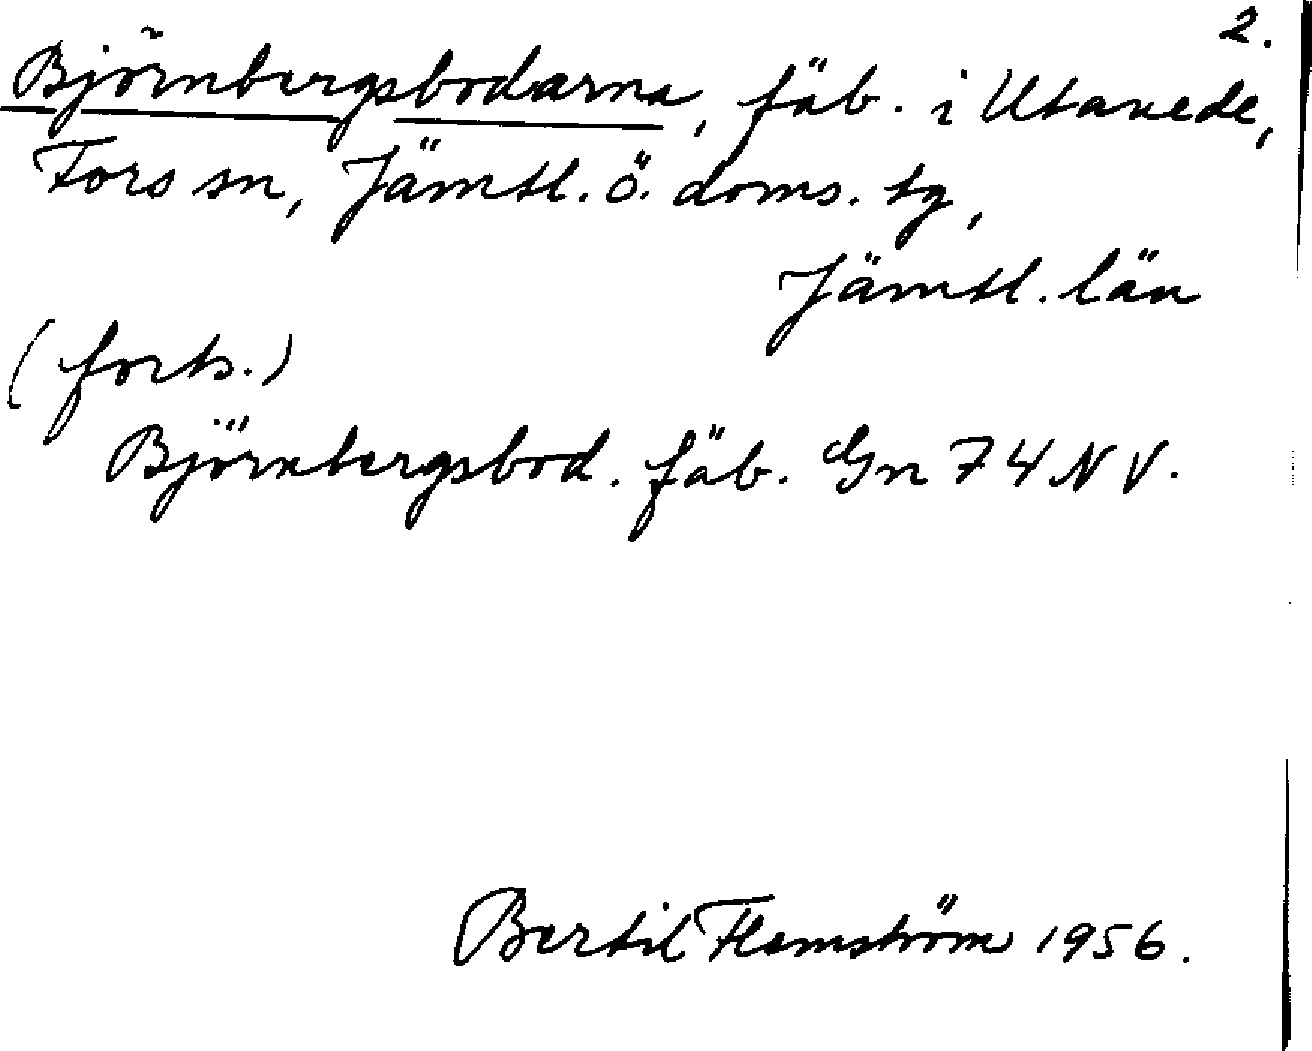 2.
Björnbergsbodarna, fäb. i Utanede,
Fors sn, Jämtl. ö. doms. tg,
Jämtl. län
(forts.)
Björnbergsbod. fäb. Gn 74 NV.
Bertil Flemström 1956.